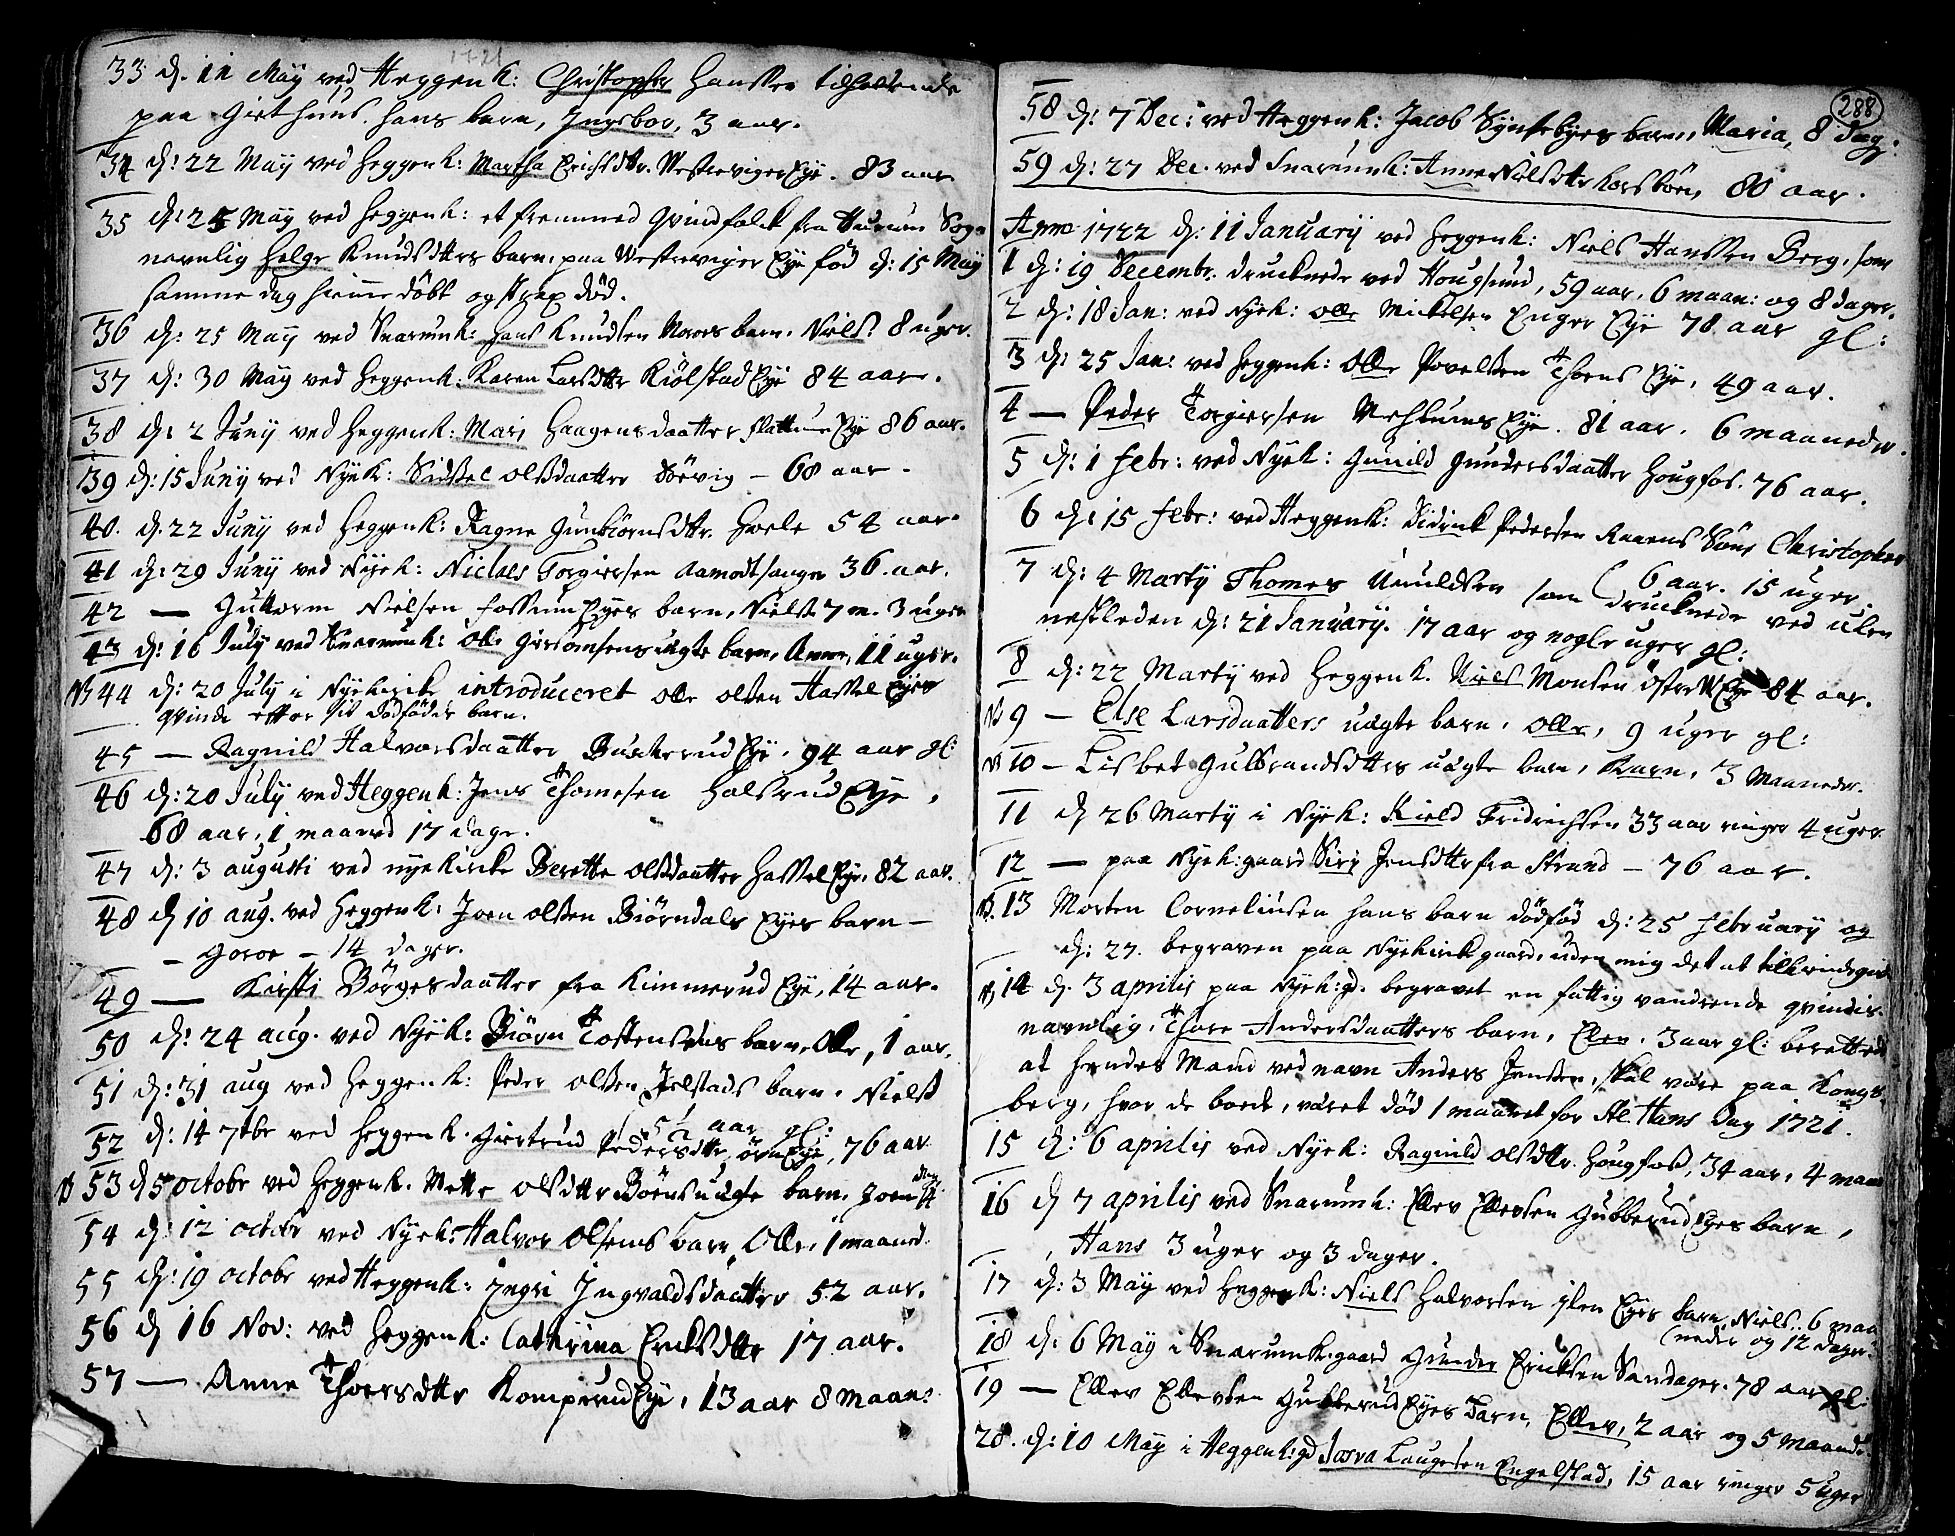 1721
33 d. 11 Maÿ ved Heggenk: Christopher Hanssen tilholdende
paa Githuus. hans barn, Ingebor, 3 aar.
34 d: 22 Maÿ ved Heggenk: Martha Erichsdtr. Westreviger Eÿe. 83 aar
35 d: 25 Maÿ ved Heggenk: et fremmed Qvindfolck fra Hurum Sogn
navnlig Helge Knudsdtters barn, paa Westreviger Eÿe fød d: 15 Maÿ
samme dag hiemme døbt og strax død.
36 d: 25 Maÿ ved Snarumk: Hans Knudsen Moens barn. Niels. 8 uger.
37 d: 30 Maÿ ved Heggenk: Karen Larsdttr Kiølstad Eÿe 84 aar.
38 d: 2 Junÿ ved Heggenk: Mari Haagensdaatter Slattum Eÿe 86 aar.
39 d: 15 Junÿ ved Nÿek: Sidsel Olsdaatter Sørvig – 68 aar.
40. d. 22 Junÿ ved Heggenk: Ragne Gunbiørnsdtr. Hoele 54 aar.
41 d: 29 Junÿ ved Nÿek: Niclaes Torgiersen Aamodtsanger 36. aar.
42 — Guttorm Nielsen Fossum Eÿes barn, Niels 7 m. 3 uger
43 d: 16 Julÿ ved Snarumk: Ole Giersomsens uægte barn, Anne, 11 uger.
NB 44 d: 20 Julÿ i Nÿekircke introduceret Olle Olsen Hassel Eÿes
qvinde efter sit dødfødde barn.
45 — Ragnild Halvorsdaatter Buskerud Eÿe, 94 aar gl:
46 d: 20 Julÿ ved Heggenk: Jens Thomesen Halsrud Eÿe,
68 aar, 1 maaned 17 dage.
47 d: 3 augusti ved nÿekircke Berette Olsdaatter Hassel Eÿe, 82 aar.
48 d 10 aug. ved Heggenk: Joen Olsen Biørndals Eÿes barn –
– Goroe – 14 dager.
49 — Kirsti Børgesdaatter fra Kimmerud Eÿe, 14 aar.
50 d: 24 aug. ved Nÿek: Biørn Tostensens barn, Olle, 1 aar.
51 d: 31 aug ved Heggenk: Peder Olsen Jelstads barn. Niels
5½ aar gl:
52 d: 14 7tbr ved Heggenk. Giertrud Pedersdtter, Ørn Eÿe, 76 aar
53 d 5 octobr ved Heggenk. Mette Olsdttr Bøens uægte barn. Joen 14 dag
54 d: 12 octobr ved Nÿek: Halvor Olsens barn Olle, 1 maaned.
55 d: 19 octobr ved Heggenk: Ingri Ingvaldsdaatter 52 aar.
56 d 16 Nov: ved Heggenk: Cathrina Ericksdttr 17 aar.
57 — Anne Thoersdttr Komperud Eÿe, 13 aar 8 maan:
288
58 d: 7 Dec: ved Heggenk: Jacob Sÿnsebÿes barn, Maria, 8 dag:
59 d: 27 Dec. ved Snarumk: Anne Nilsdttr Korsbøen, 80 aar.
Anno 1722 d: 11 Januarÿ ved Heggenk: Niels Hanssen Berg, som
1 d: 19 Decembr. drucknede ved Hougsund, 59 aar, 6 maan: og 8 dager.
2 d: 18 Jan: ved Nÿek: Olle Mickelsen Enger Eÿe 78 aar gl:
3 d: 25 Jan: ved Heggenk: Olle Povelsen Thoens Eÿe, 49 aar.
4 — Peder Torgiersen Mehlums Eÿe. 81 aar. 6 maaneder.
5 d: 1 Febr: ved Nÿek: Gunild Gundersdaatter Hougfos. 76 aar.
6 d: 15 Febr: ved Heggenk: Didrick Pedersen Raaens Søns Christopher
6 aar. 15 uger.
7 d: 4 Martÿ Thomes Unuldsen som drucknede ved ulen
nestleden d: 21 Januarÿ. 17 aar og nogle uger gl:
8 d: 22 Martÿ ved Heggenk. Niels Monsen Østre Eÿe 84 aar.
NB 9 — Else Larsdaatters uægte barn, Olle, 9 uger gl:
NB 10 – Lisbet Gulbrandsdttrs uægte barn, Karn, 3 Maaneder.
11 d 26 Martÿ i Nÿek: Kield Fridrichsen 33 aar ringer 4 uger.
12 — paa Nÿek: gaard Sirÿ Jensdttr fra Strand – 76 aar.
NB. 13 Morten Corneliusen hans barn dødfød d: 25 Februarÿ og
d: 27. begraven paa Nÿekirckgaard, uden mig det at tilkiendegive
NB 14 d. 3 aprilis paa Nÿek:gd. begravet en fattig vandrende qvindis
navnlig, Thore Andersdaatters barn, Ellen, 3 aar gl: berettede
at hendes Mand ved navn Anders Jensen, skal være paa Kongs
berg, hvor de boede, været død 1 maanet for St. Hans Dag 1721.
15 d: 6 aprilis ved Nÿek: Ragnild Olsdttr. Hougfos, 34 aar, 4 maan
16 d 7 aprilis ved Snarumk: Ellev Ellevsen Gubberud Eÿes barn,
, Hans 3 uger og 3 dager.
17 d: 3 Maÿ ved Heggenk: Niels Halvorsen Islen Eÿes barn, Niels. 6 maa
neder og 12 dager.
18 d: 6 Maÿ i Snarumk:gaard Gunder Ericksen Sandager. 78 aar gl:
19 — Ellev Ellevsen Gubberud Eÿes Barn, Ellev, 2 aar og 5 maande
20. d: 10 Maÿ i Heggenk:gd Laugesen Engelstad, 15 aar ringer 5 uger